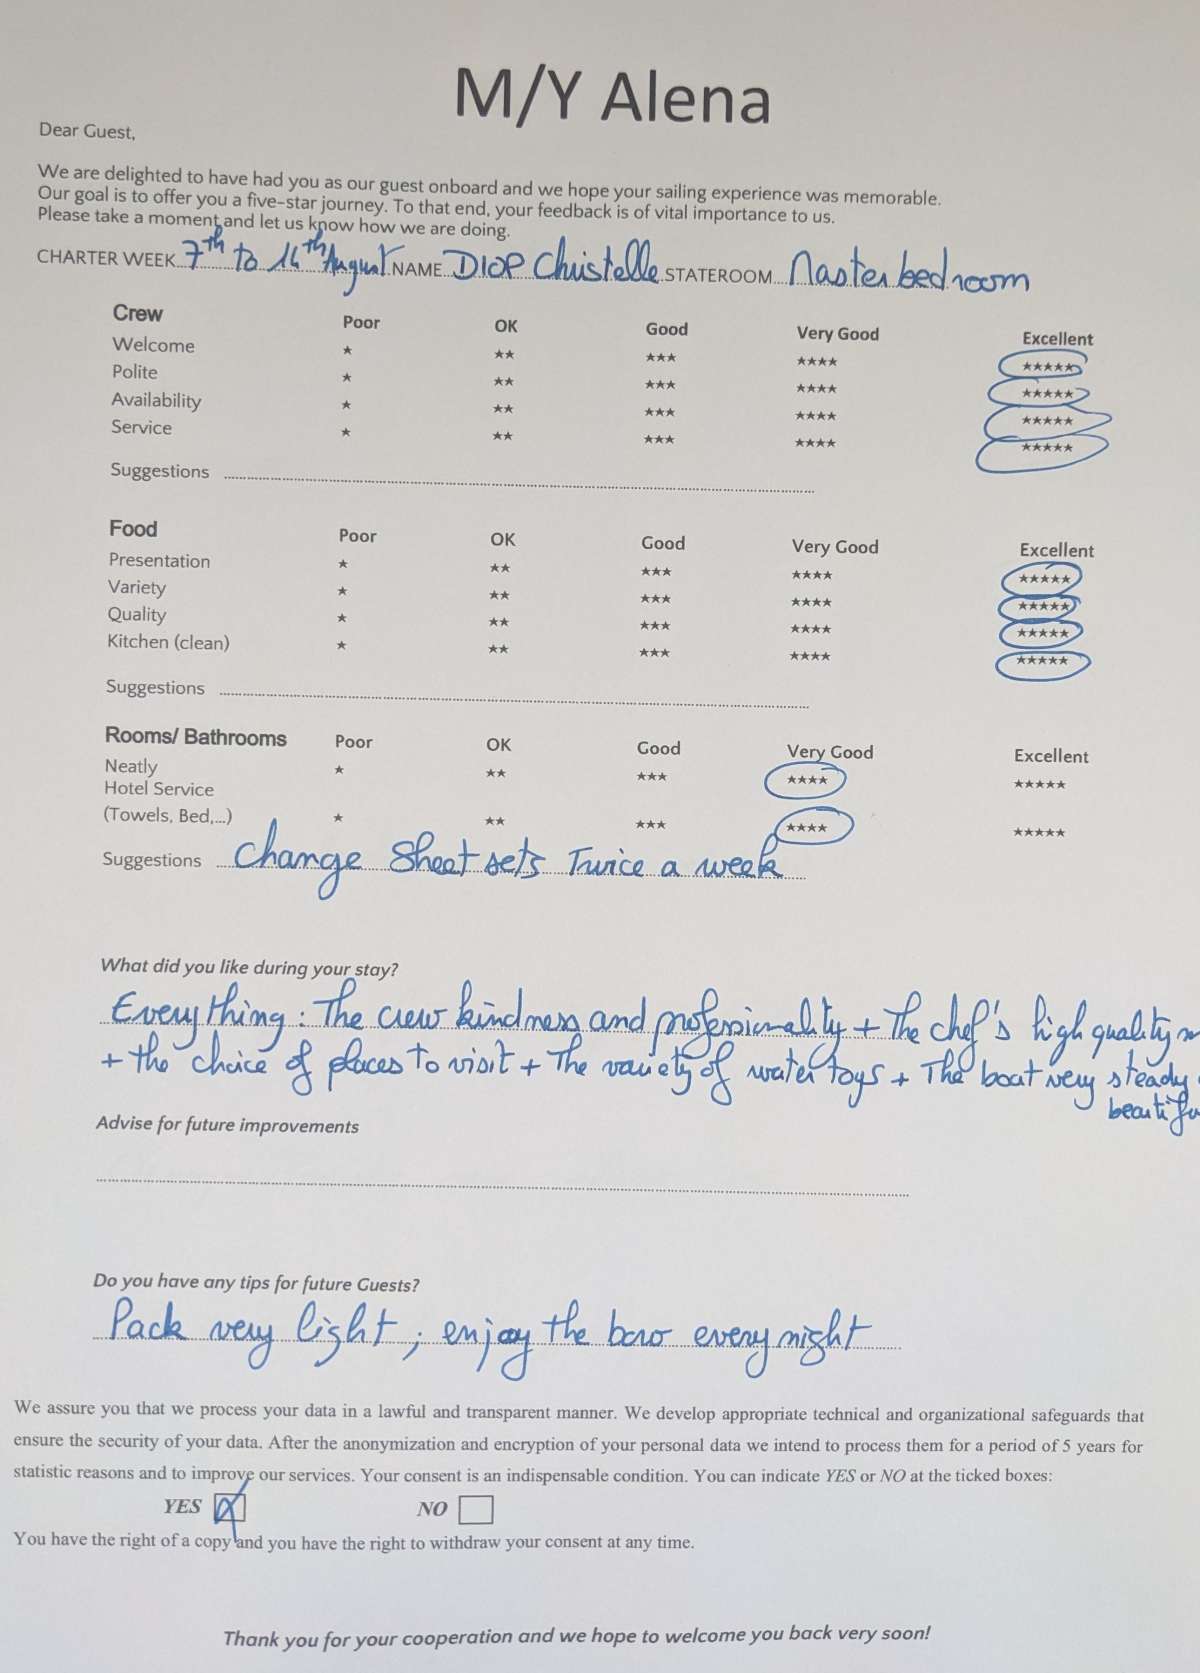 M/Y Alena
Dear Guest,
We are delighted to have had you as our guest onboard and we hope your sailing experience was memorable.
Our goal is to offer you a five-star journey. To that end, your feedback is of vital importance to us.
Please take a moment and let us know how we are doing.
CHARTER WEEK 7th to 14th August NAME DIOP Christelle STATEROOM Master bedroom
Crew Poor OK Good Very Good Excellent
Welcome ★ ★★ ★★★ ★★★★ ★★★★★
Polite ★ ★★ ★★★ ★★★★ ★★★★★
Availability ★ ★★ ★★★ ★★★★ ★★★★★
Service ★ ★★ ★★★ ★★★★ ★★★★★
Suggestions
Food Poor OK Good Very Good Excellent
Presentation ★ ★★ ★★★ ★★★★ ★★★★★
Variety ★ ★★ ★★★ ★★★★ ★★★★★
Quality ★ ★★ ★★★ ★★★★ ★★★★★
Kitchen (clean) ★ ★★ ★★★ ★★★★ ★★★★★
Suggestions
Rooms/ Bathrooms Poor OK Good Very Good Excellent
Neatly ★ ★★ ★★★ ★★★★ ★★★★★
Hotel Service
(Towels, Bed,...) ★ ★★ ★★★ ★★★★ ★★★★★
Suggestions Change Sheet sets Twice a week
What did you like during your stay?
Everything : The crew kindness and professionality + The chef's high quality
+ the choice of places to visit + The variety of water toys + The boat very steady
Advise for future improvements
Do you have any tips for future Guests?
Pack very light ; enjoy the bow every night
We assure you that we process your data in a lawful and transparent manner. We develop appropriate technical and organizational safeguards that
ensure the security of your data. After the anonymization and encryption of your personal data we intend to process them for a period of 5 years for
statistic reasons and to improve our services. Your consent is an indispensable condition. You can indicate YES or NO at the ticked boxes:
YES NO
You have the right of a copy and you have the right to withdraw your consent at any time.
Thank you for your cooperation and we hope to welcome you back very soon!